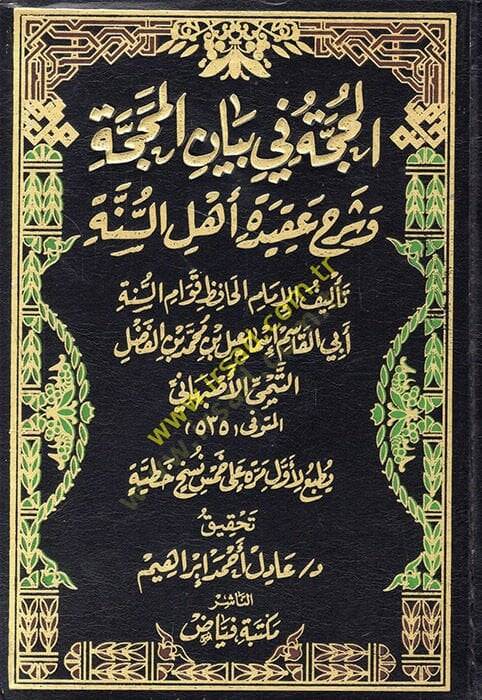 الحُجَّةُ فِي بَيَانِ المَحَجَّةِ
وَشَرْحِ عَقِيدَةِ أَهْلِ السُّنَّةِ
تَأْلِيفُ الإِمَامِ الحَافِظِ قَوَّامِ السُّنة
أَبِي القَاسِمِ إِسْمَاعِيلَ بْنِ مُحَمَّدِ بْنِ الفَضْلِ
التَّيْمِيِّ الأَصْبَهَانِيِّ
المتوفى (٥٣٥)
يُطْبَع لأوَّل مَرّة عَلَى خَمْسِ نُسَخٍ خَطيّة
تَحْقِيقُ
د/ عَادِل أَحْمَد إِبْرَاهِيم
النَّاشِرُ
مَكْتَبَة فَيَّاض